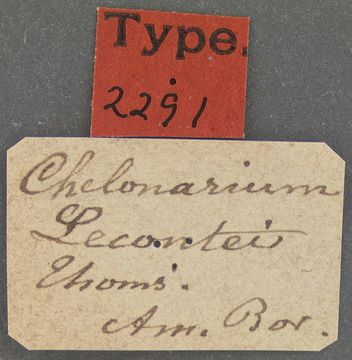 Type.
2291
Chelonarium
Lecontei
Thoms.
Am. Bor.